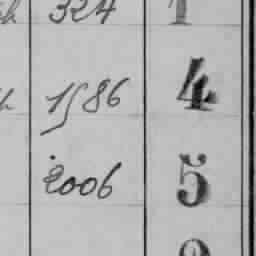 324 1
1586 4
2006 5